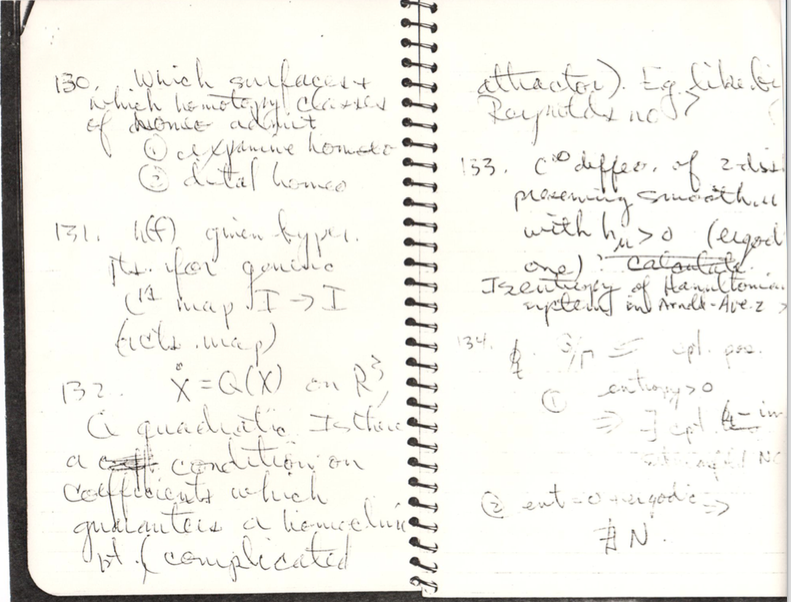 130. Which surfaces +
which homotopy classes
of homeo admit
① expansive homeo
② distal homeo
131. h(f) given by per.
pts. for generic
C¹ map I → I
(cts. map)
132. Ẋ = Q(X) on R³,
Q quadratic Is there
a condition on
coefficients which
guarantees a homoclinic
pt. (complicated
attractor). Eg. like bi
Reynolds no?
133. C∞ diffeo. of 2-dis
preserving smooth
with hμ > 0 (ergod
one)
Is entropy of Hamiltonian
system in Arnold-Avez >
134. cpt. pos.
① entropy > 0
⇒ ∃ cpt. in
② ent = 0 + ergodic ⇒
∄ N.